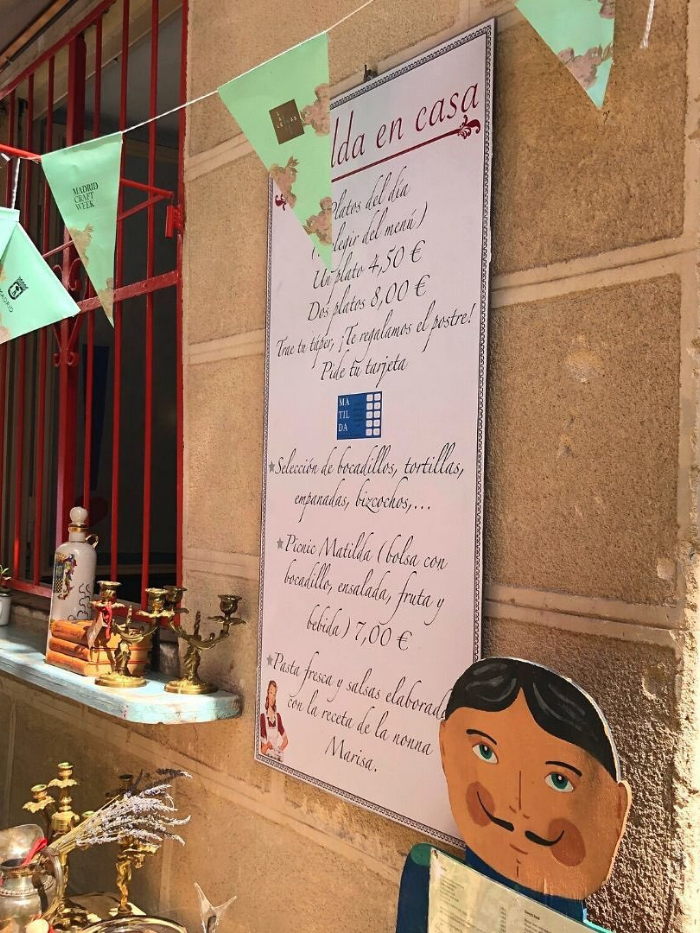 lda en casa
Platos del día
legir del menú)
Un plato 4,50 €
Dos platos 8,00 €
Trae tu táper, ¡Te regalamos el postre!
Pide tu tarjeta
MA
TIL
DA
Selección de bocadillos, tortillas,
empanadas, bizcochos,...
Picnic Matilda (bolsa con
bocadillo, ensalada, fruta y
bebida) 7,00 €
Pasta fresca y salsas elaborada
con la receta de la nonna
Marisa.
MADRID
CRAFT
WEEK
MADRID